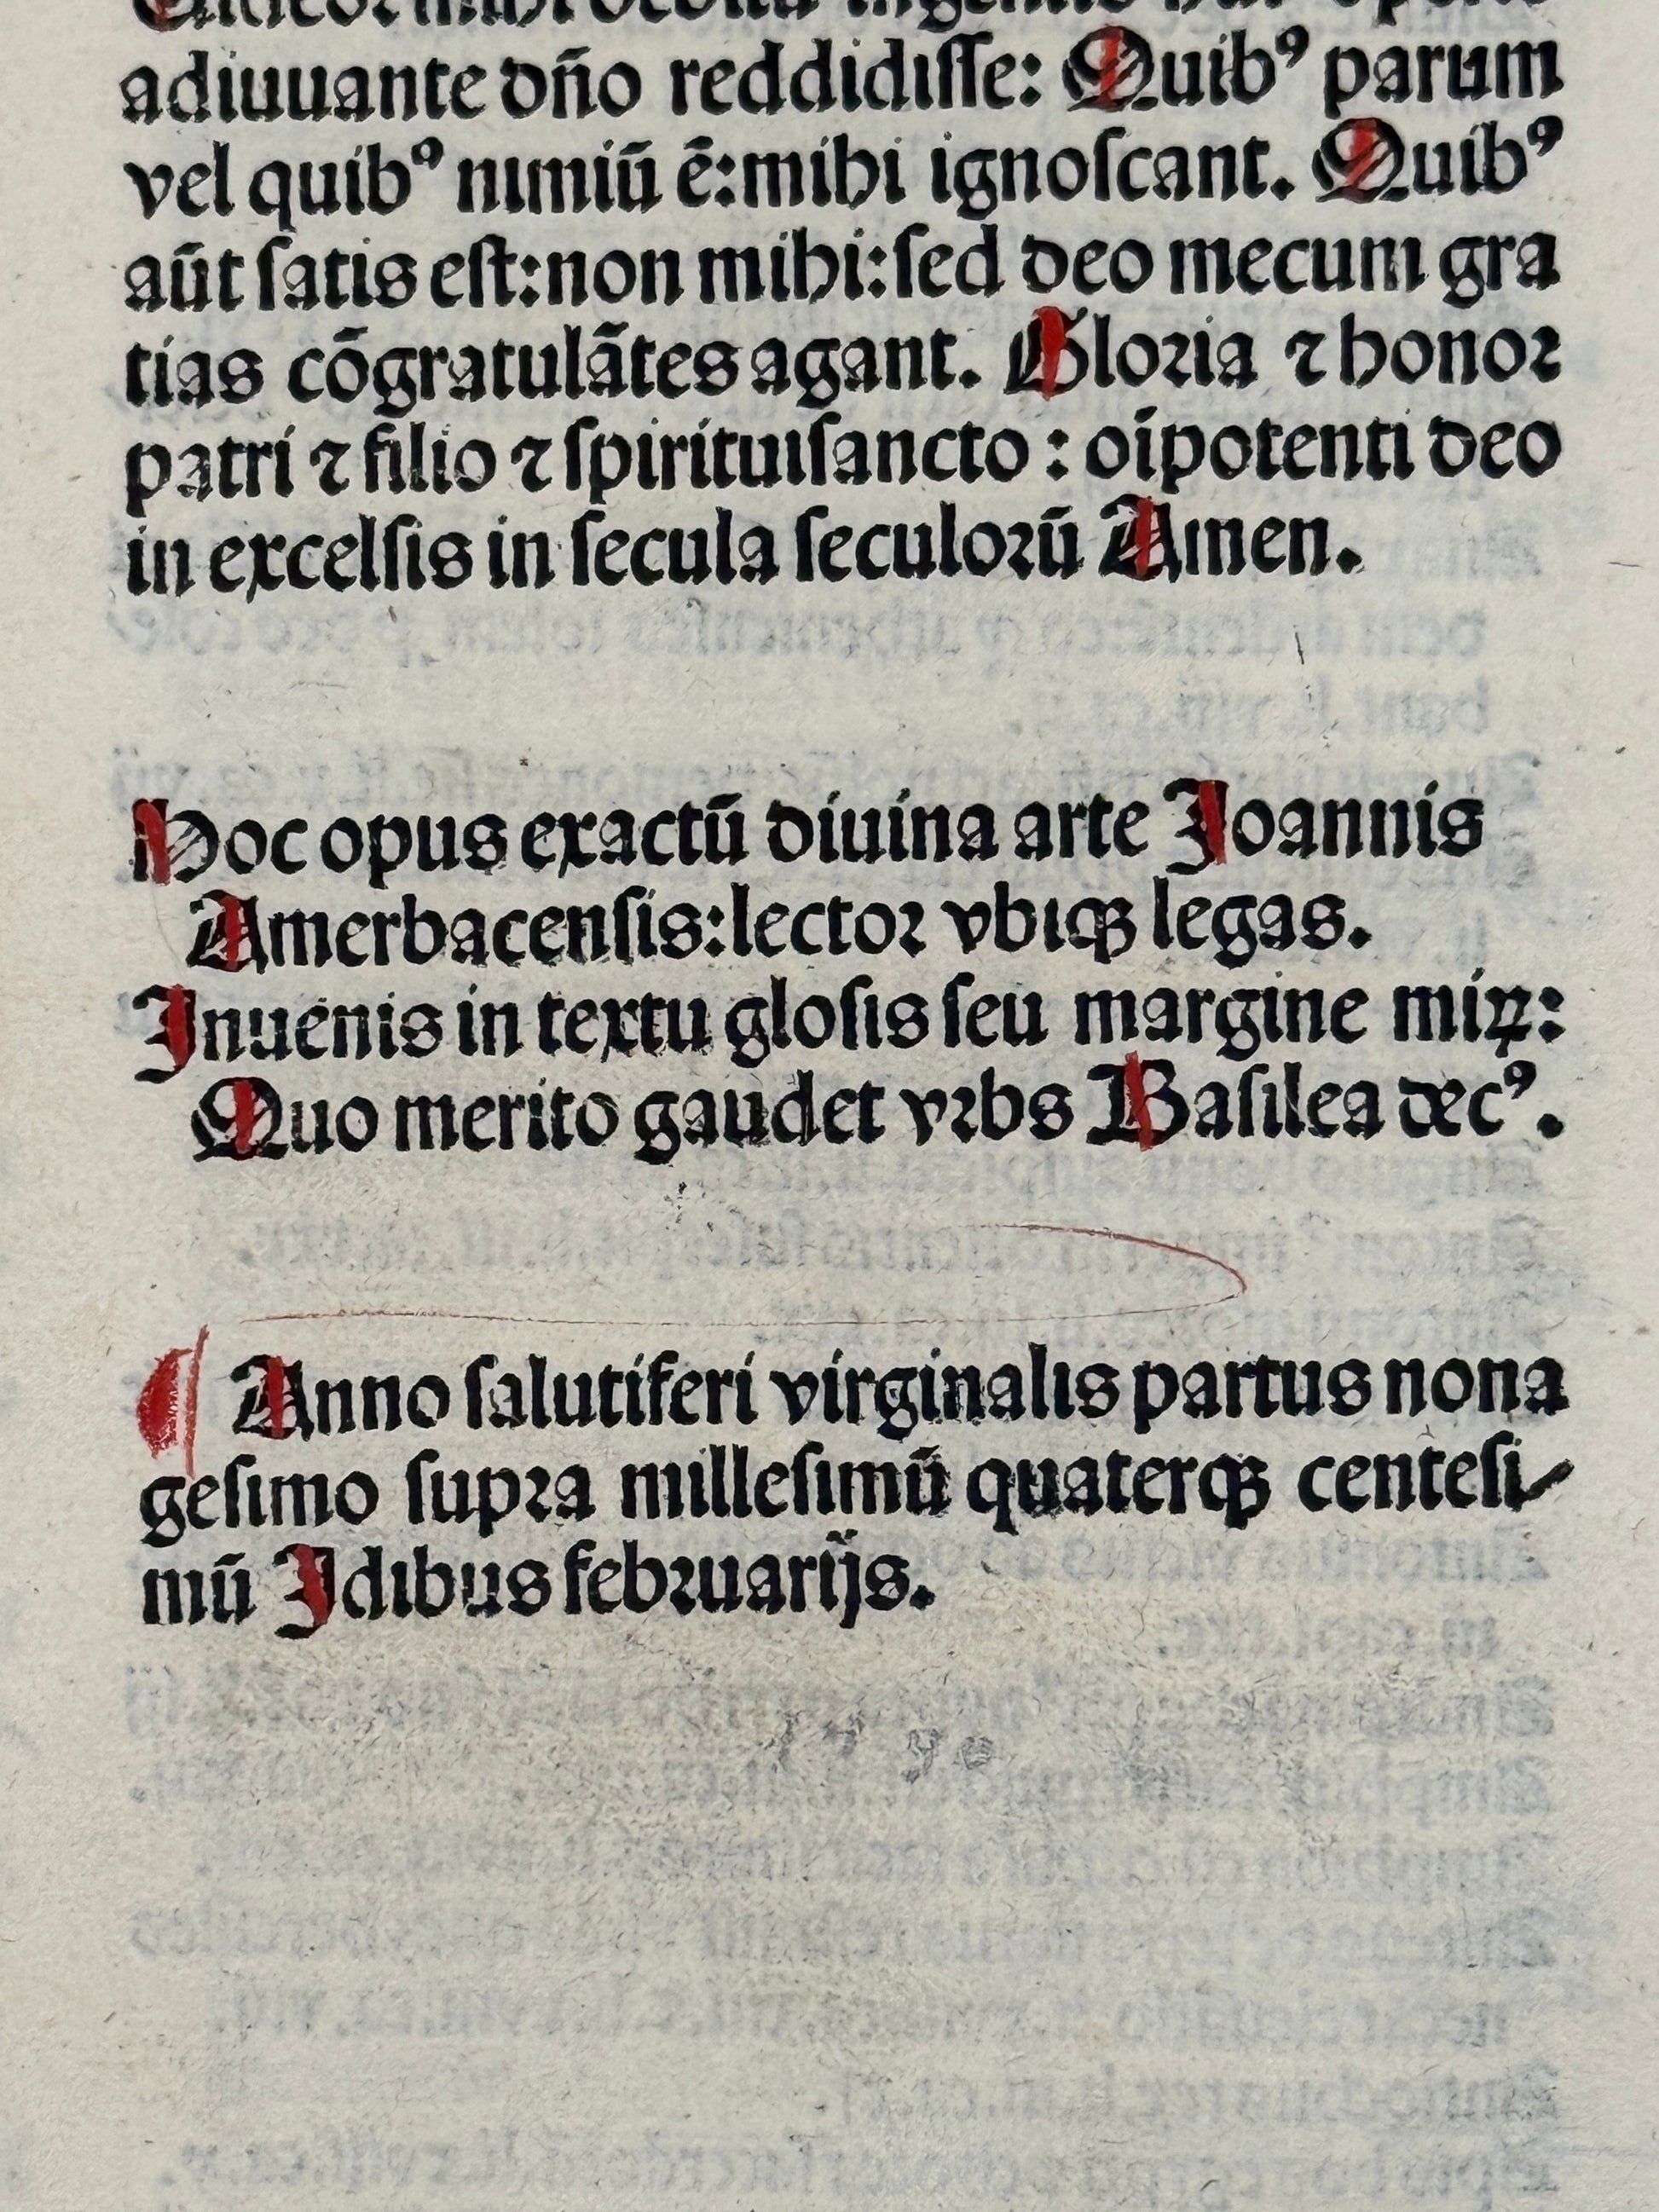 adiuuante dño reddidiſſe: Quibꝰ parum
vel quibꝰ nimiū ē: mihi ignoſcant. Quibꝰ
aūt ſatis eſt: non mihi: ſed deo mecum gra
tias cōgratulātes agant. Gloꝛia ⁊ honoꝛ
patri ⁊ filio ⁊ ſpirituiſancto : oīpotenti deo
in excelſis in ſecula ſeculoꝛū Amen.
Hoc opus exactū diuina arte Joannis
Amerbacenſis: lectoꝛ vbiqꝫ legas.
Inuenis in textu gloſis ſeu margine miꝝ:
Quo merito gaudet vꝛbs Baſilea decꝰ.
¶ Anno ſalutiferi virginalis partus nona
geſimo ſupꝛa milleſimū quaterqꝫ centeſi-
mū Idibus febꝛuarijs.